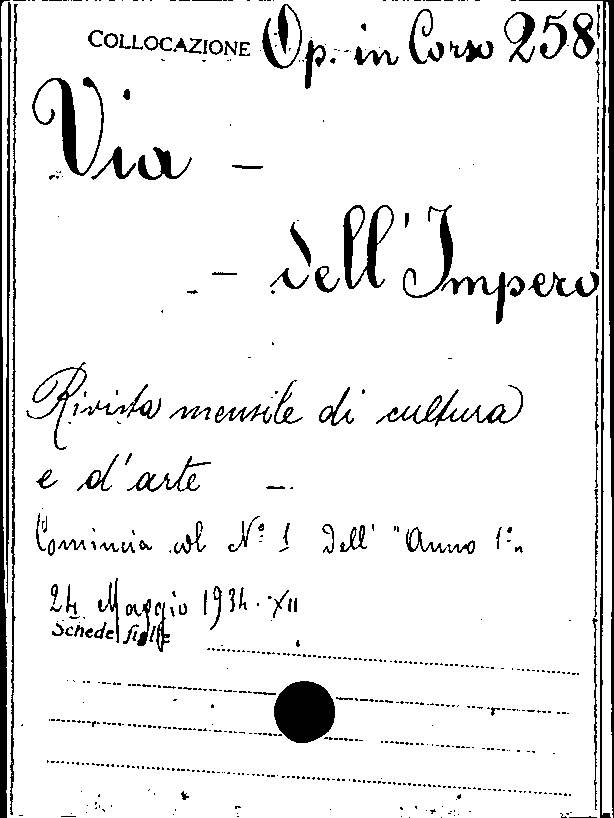 COLLOCAZIONE Op. in Corso 258
Via -
- dell'Impero
Rivista mensile di cultura
e d'arte -
Comincia col Nº 1 dell' "Anno 1º"
24 Maggio 1934 · XII
Schede figlie